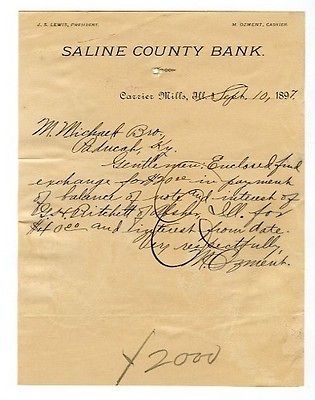 J. S. LEWIS, PRESIDENT. M. OZMENT, CASHIER.
SALINE COUNTY BANK.
Carrier Mills, Ill. Sept. 10, 1897.
M. Michael Bro,
Paducah, Ky.
Gentlemen: Enclosed find
exchange for $20.00 in payment
of balance of note and interest of
Pritchett of Ill. for
$40.00 and interest from date.
Very respectfully,
M. Ozment.
2000